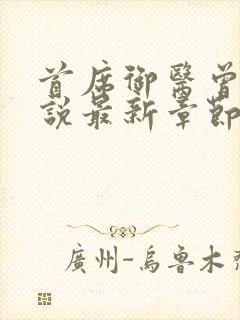 首席御醫曾
說最新章節
廣州-烏魯木